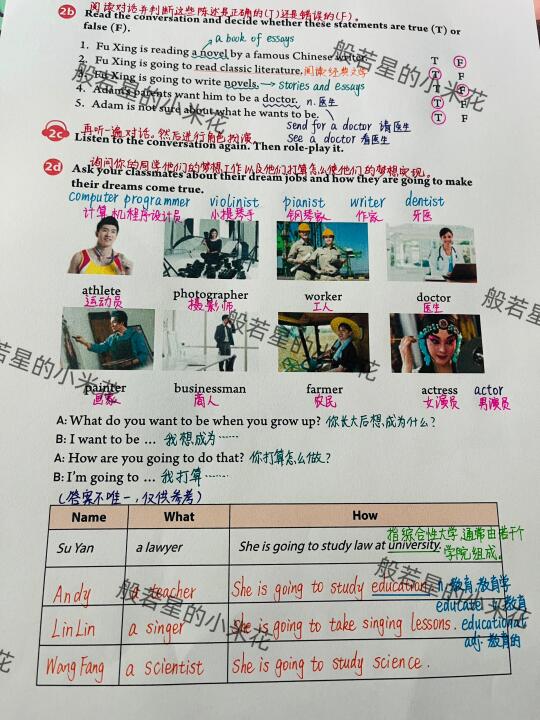 阅读对话并判断这些陈述是正确的(T)还是错误的(F)。
2b Read the conversation and decide whether these statements are true (T) or
false (F).
a book of essays
1. Fu Xing is reading a novel by a famous Chinese writer. T F
2. Fu Xing is going to read classic literature. 阅读经典文学 T F
3. Fu Xing is going to write novels. → stories and essays T F
4. Adam's parents want him to be a doctor. n. 医生 T F
5. Adam is not sure about what he wants to be. T F
send for a doctor 请医生
see a doctor 看医生
再听一遍对话。然后进行角色扮演。
2c Listen to the conversation again. Then role-play it.
询问你的同学他们的梦想工作以及他们打算怎么使他们的梦想实现。
2d Ask your classmates about their dream jobs and how they are going to make
their dreams come true.
computer programmer violinist pianist writer dentist
计算机程序设计员 小提琴手 钢琴家 作家 牙医
athlete photographer worker doctor
运动员 摄影师 工人 医生
painter businessman farmer actress actor
画家 商人 农民 女演员 男演员
A: What do you want to be when you grow up? 你长大后想成为什么?
B: I want to be … 我想成为……
A: How are you going to do that? 你打算怎么做?
B: I'm going to … 我打算……
(答案不唯一,仅供参考)
Name What How
指综合性大学,通常由若干个
学院组成。
Su Yan a lawyer She is going to study law at university.
Andy a teacher She is going to study education. n. 教育,教育学
educate v. 教育
Lin Lin a singer She is going to take singing lessons. educational
adj. 教育的
Wang Fang a scientist She is going to study science.
般若星的小米花
般若星的小米花
般若星的小米花
般若星的小米花
般若星的小米花
般若星的小米花